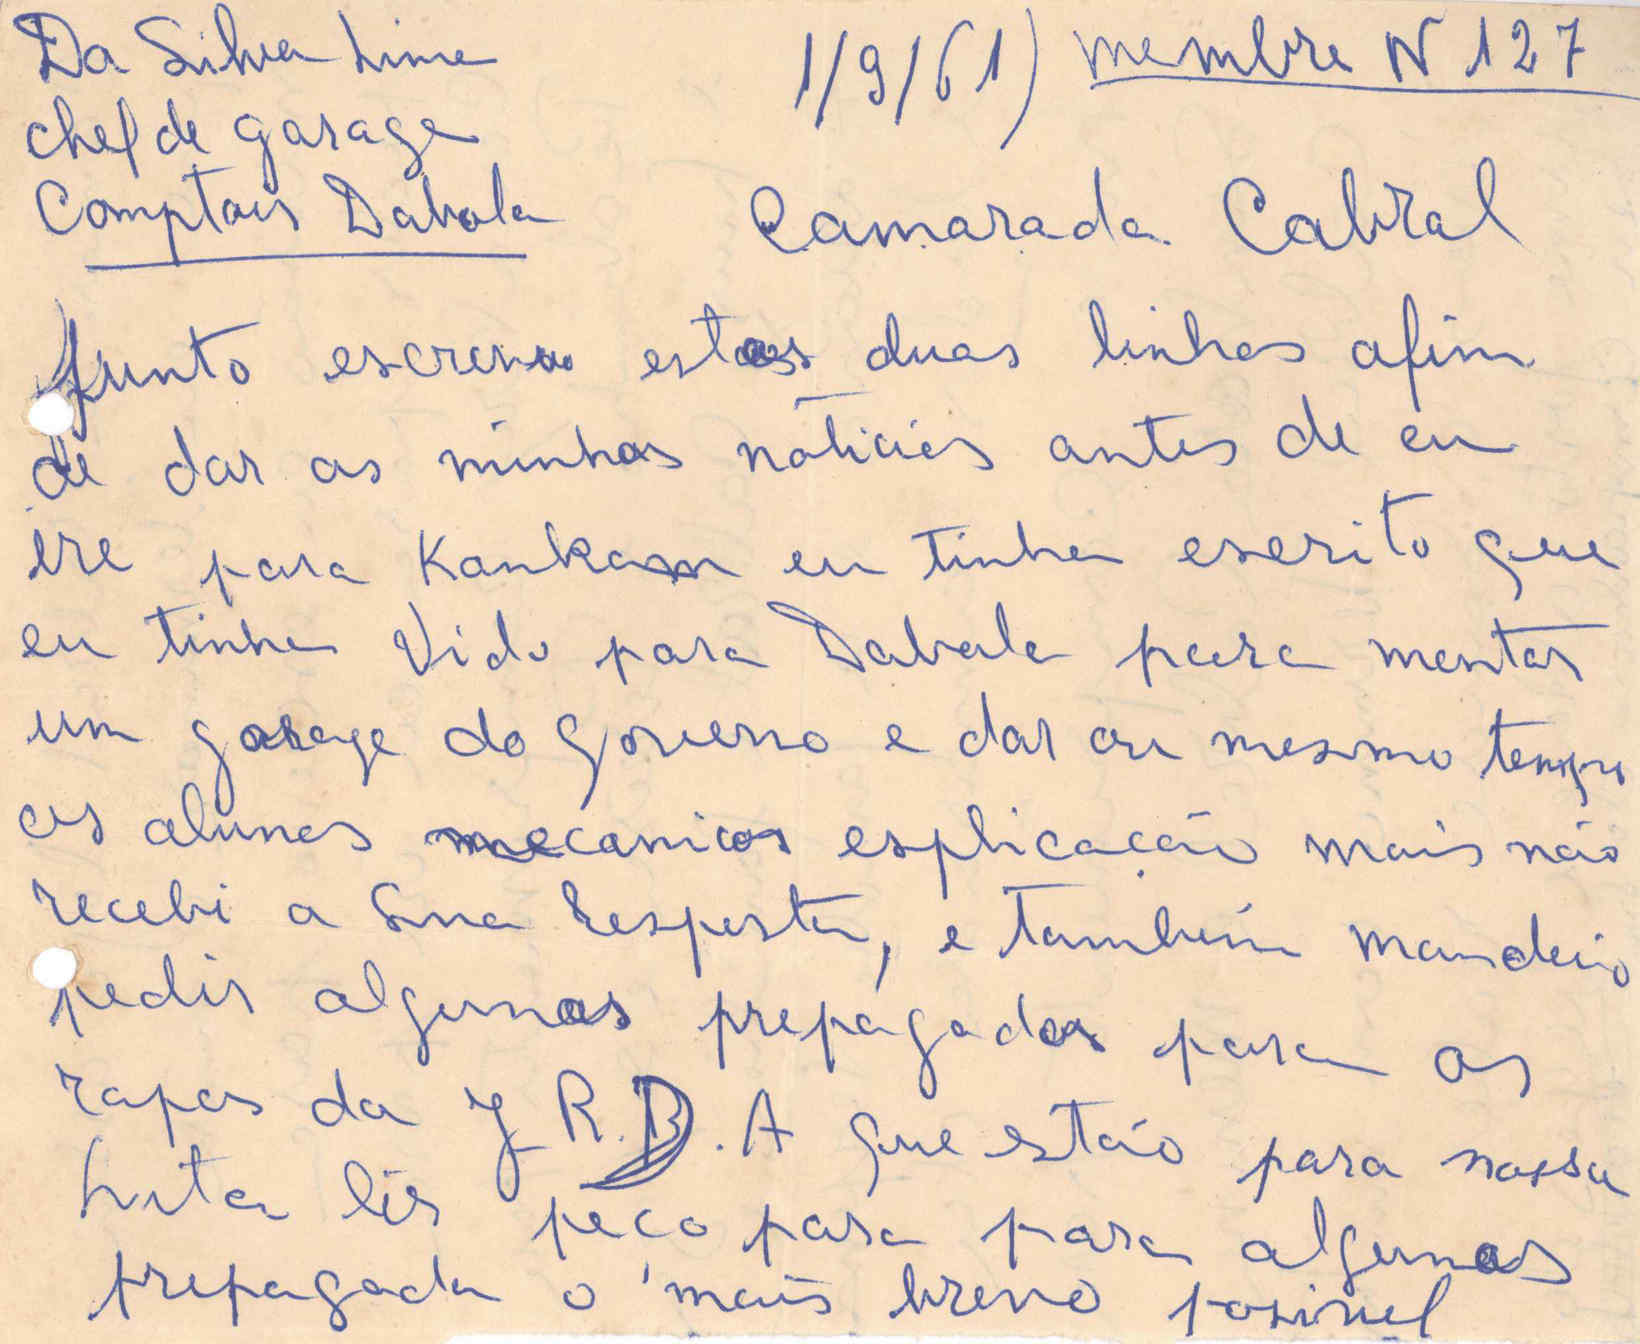 Da Silva Lima
1/9/61) membre N 127
chef de garage
Comptoir Dabola
Camarada Cabral
Junto escrevo estas duas linhas afim
de dar as minhas noticias antes de eu
ire para Kankan eu tinha escrito que
eu tinha vido para Dabola para montar
um garage do governo e dar au mesmo tempo
os alunos mecanicos esplicação mais não
recebi a sua resposta, e também mandeio
pedir algumas prepagadas para os
rapas da J R.D.A que estão para nossa
Luta lér peço para para algumas
prepagada o mais breve posivel